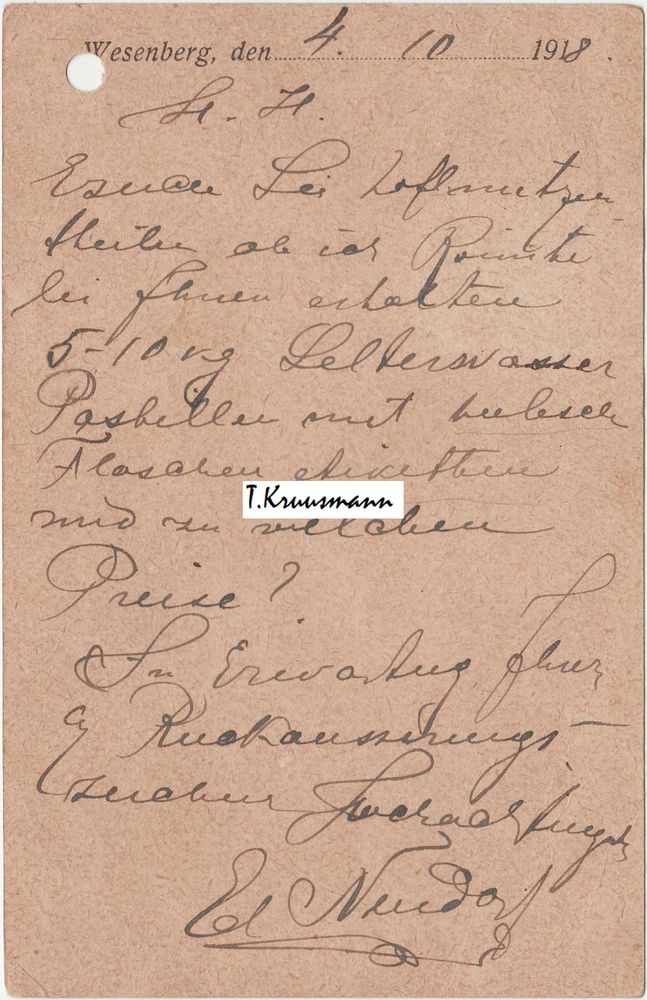 Wesenberg, den 4. 10 1918.
H. H.
Sie
ob ich
bei Ihnen erhalten
5-10 kg Selterswasser
Pastillen mit
Flaschen etiketten
T.Kruusmann
und zu welchen
Preise?
In Erwartung Ihrer
Ruckausserungs-
zeichne Hochachtungsv
Ed Neudorf